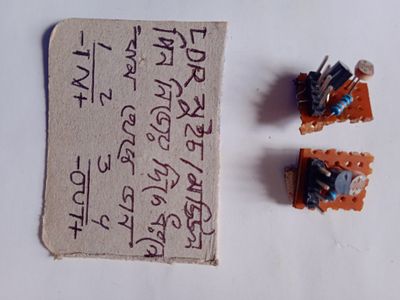 LDR সুইচ/মডিউল
পিন দিকে
বাম থেকে ডান
1 2 3 4
-IN+ -OUT+